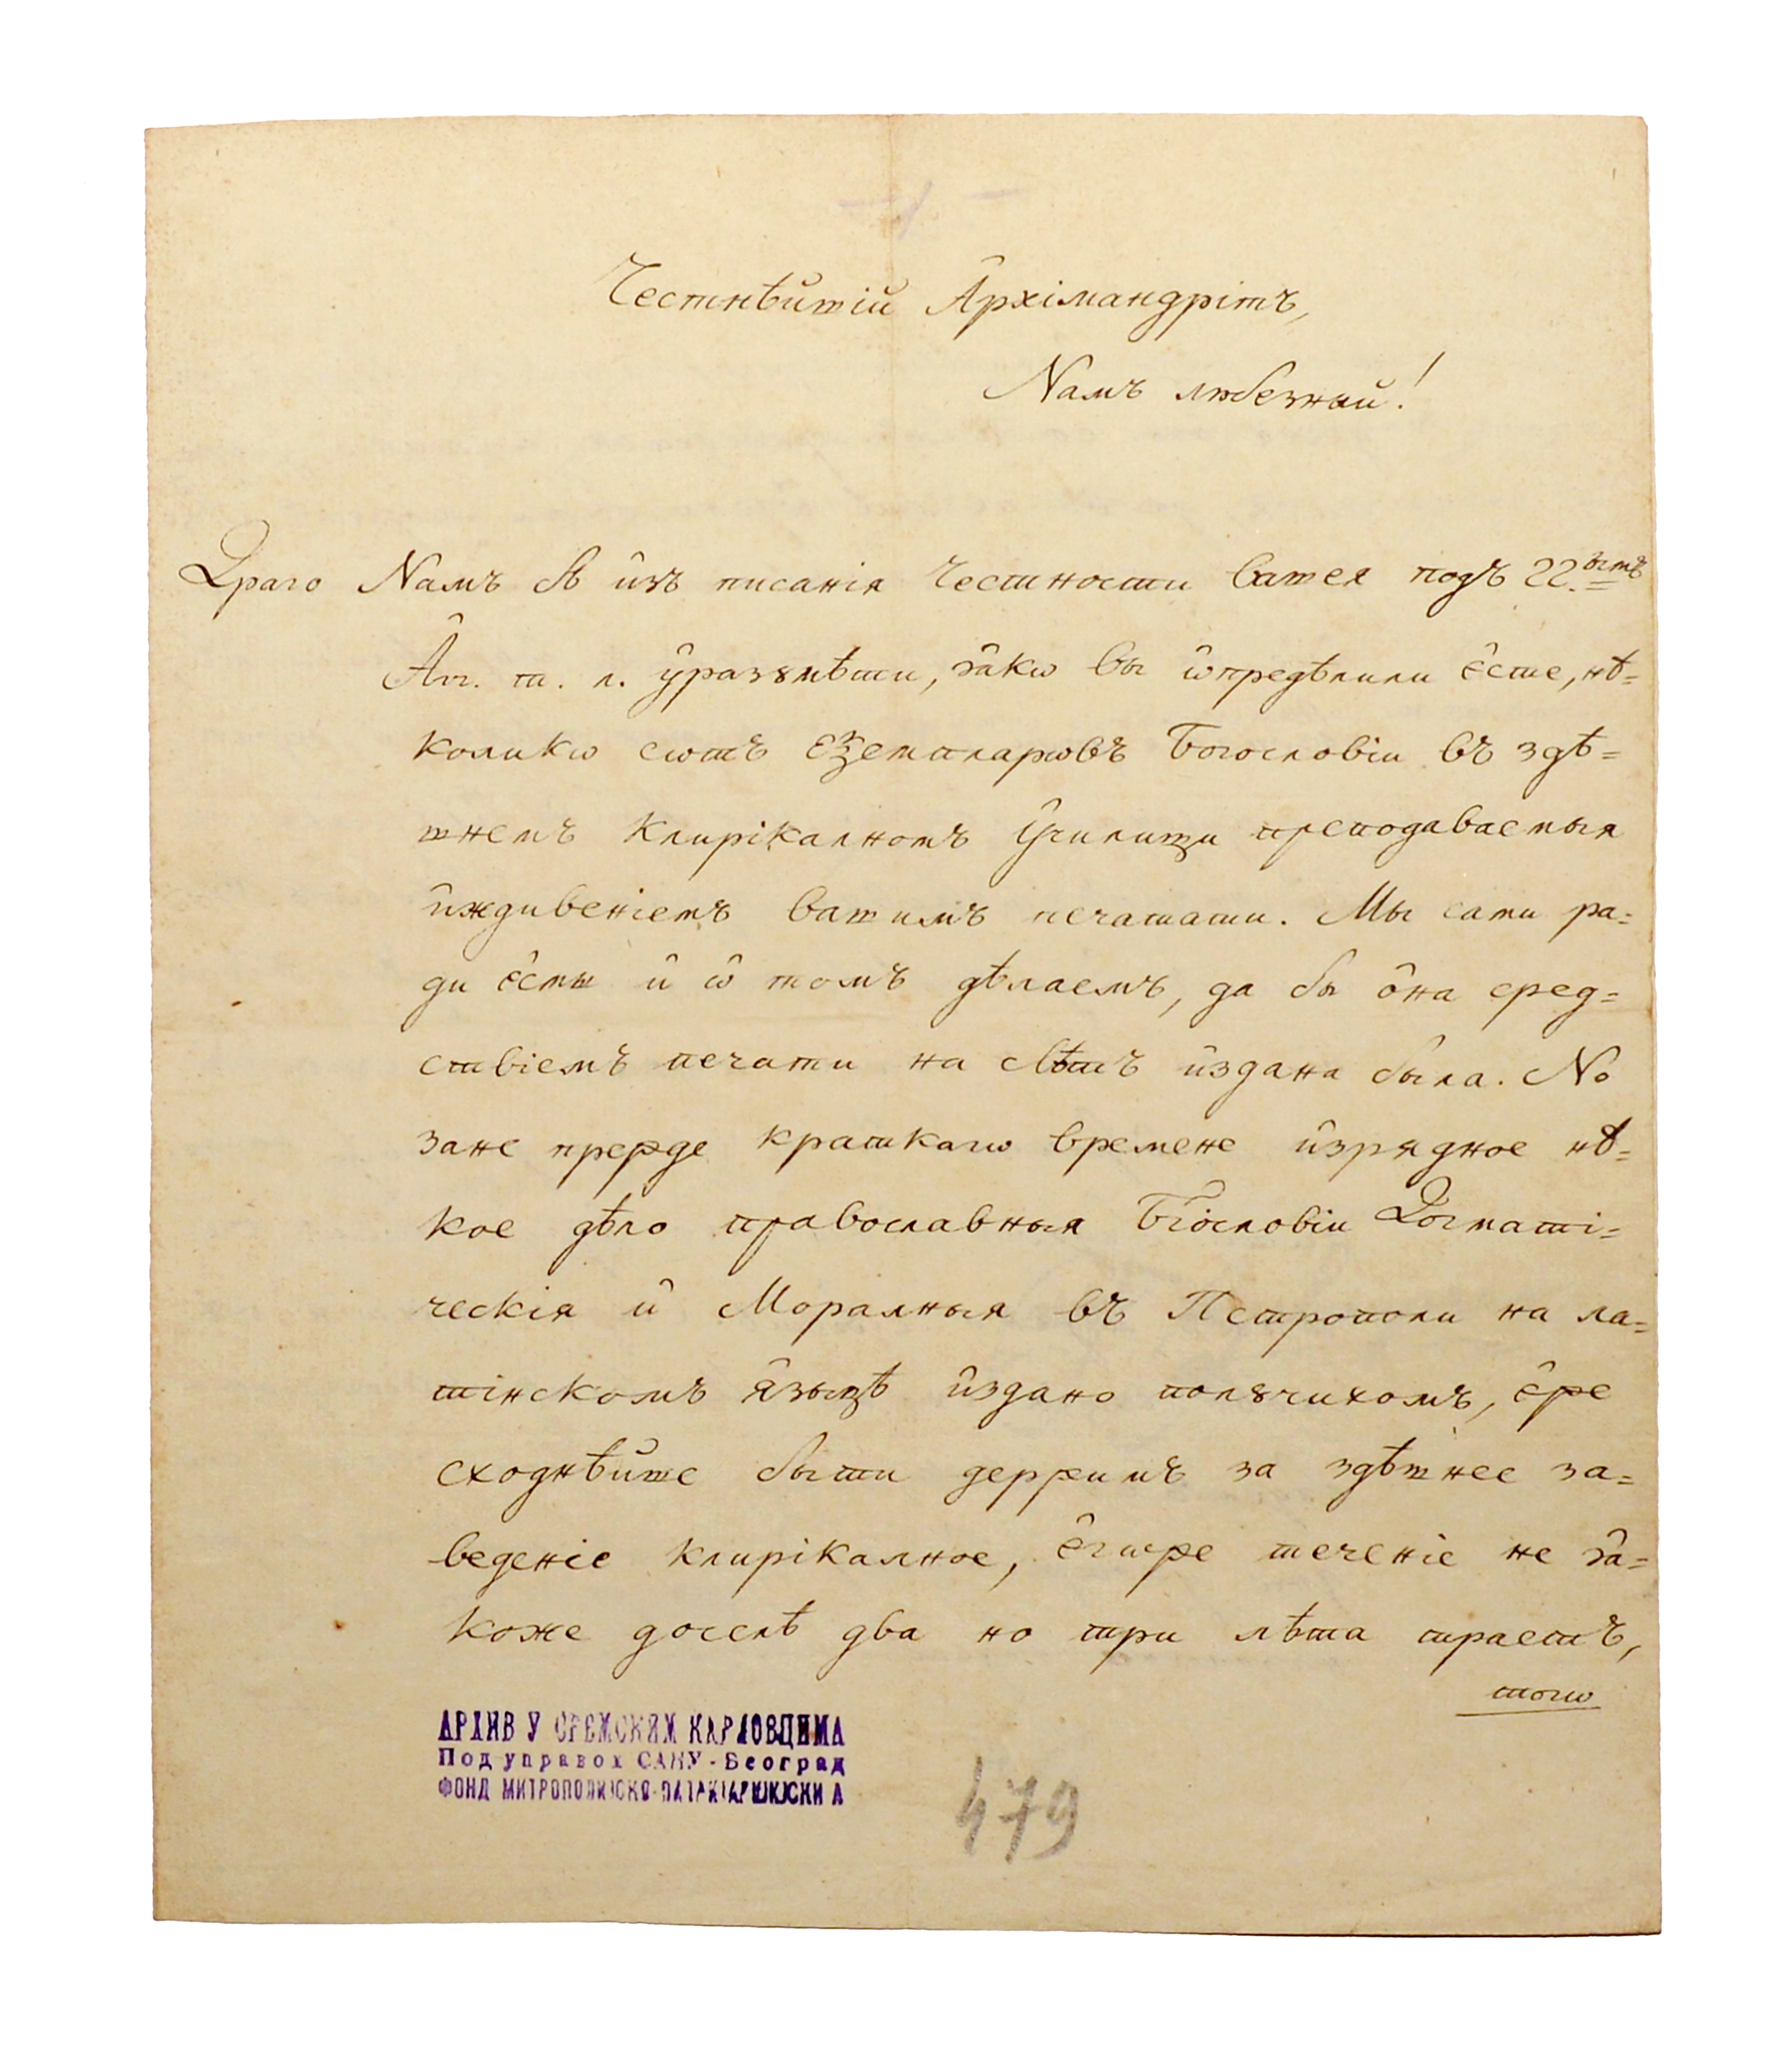 Честнѣйшій Архімандріть,
Намъ любезный!
Драго Намъ бѣ изъ писанія Честности Вашея подъ 22.
Апг. т. л. ᲂуразꙋмѣти, ꙗкѡ Вы ѡпредѣлили єсте, нѣ=
коликѡ сѡтъ еѯемпларѡвъ Богословіи въ здѣ=
шнемъ Клирікалномъ Училищи преподаваемыя
иждивеніемъ Вашимъ печатати. Мы сами ра=
ди єсмы и ѡ томъ дѣлаемъ, да бы она сред=
ствіемъ печати на свѣтъ издана была. Но
зане прежде краткагѡ времене изрядное нѣ=
кое дѣло православныя Бгословіи Догматі=
ческія и Моралныя въ Петрополи на ла=
тінскомъ языцѣ издано полꙋчихомъ, єже
сходнѣйше быти держимъ за здѣшнее за=
веденіе клирікалное, єгѡже теченіе не ꙗ=
коже доселѣ два но три лѣта траетъ,
тогѡ
АРХИВ У СРЕМСКИМ КАРЛОВЦИМА
Под управом САНУ - Београд
ФОНД МИТРОПОЛИЈСКО-ПАТРИЈАРШИЈСКИ А
479